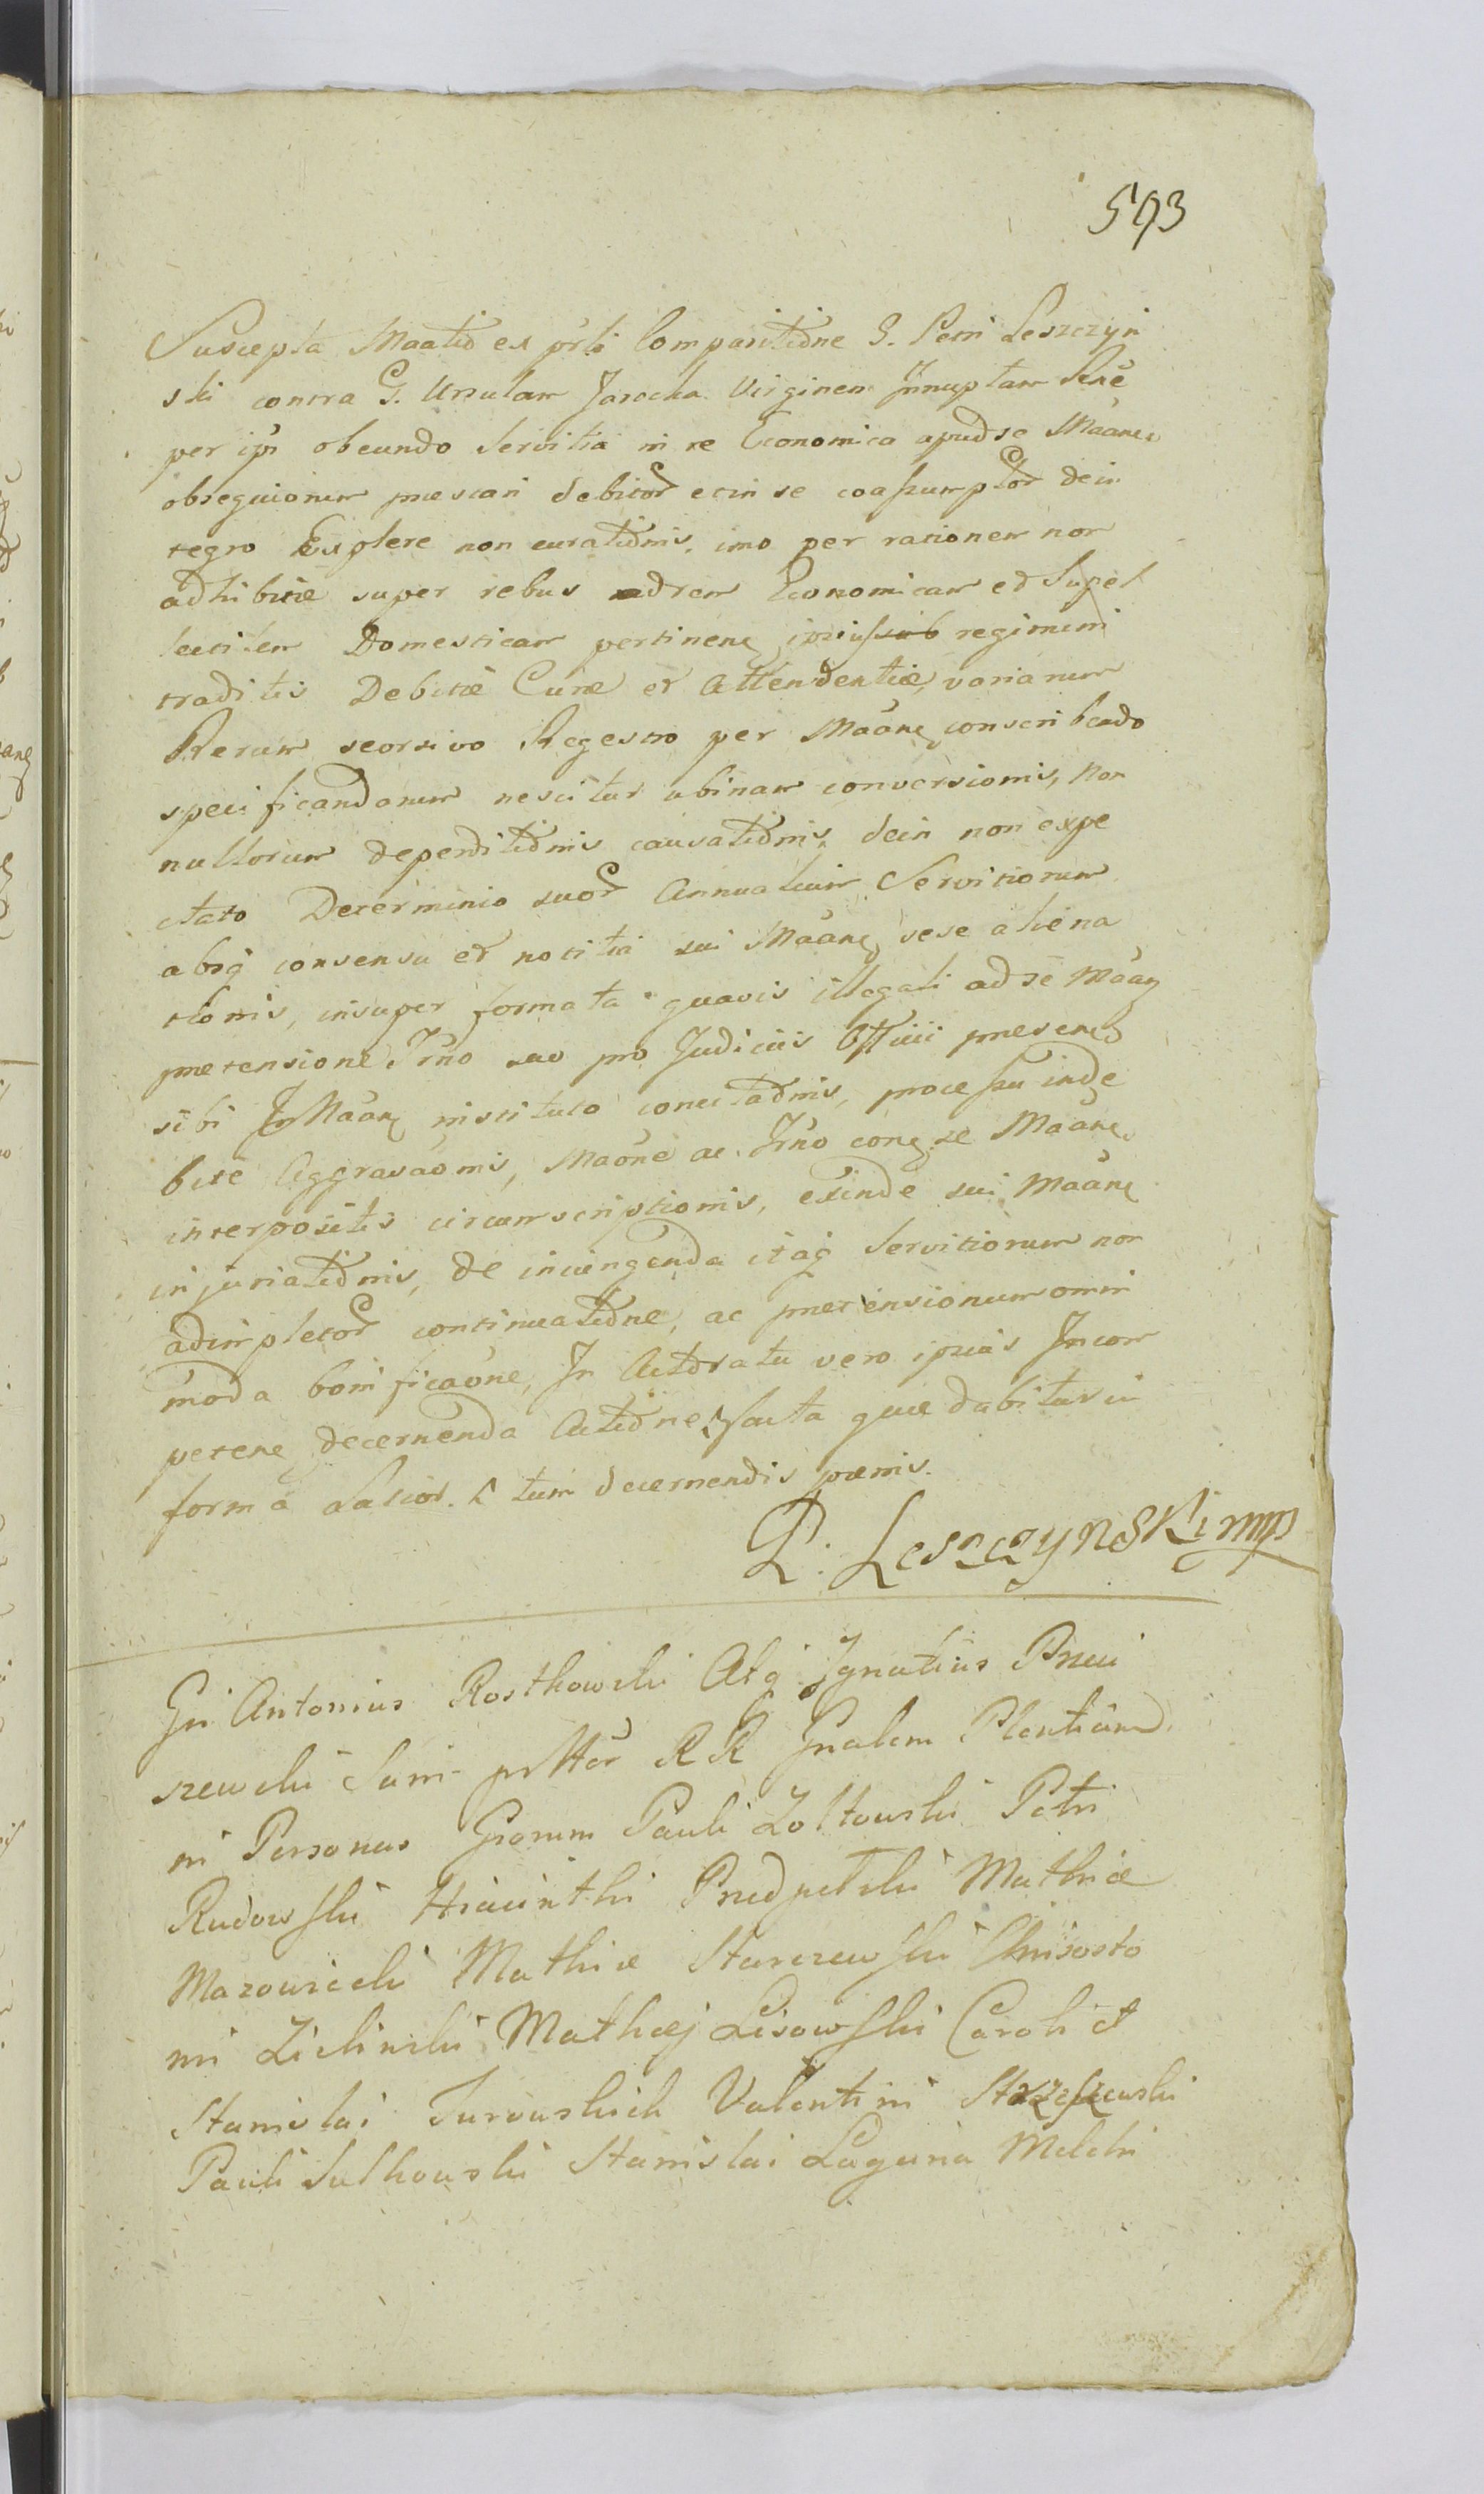 593
Suscepta Maatio ex prti Comparitiõne G. Petri Leszczyn
ski contra G. Ursulam Jarocka Virginem Jnnuptam Rnẽ
per ip̃m obeundo Servitia in re Economica apud se Maane
obsequiorum præstari debitor et in se coassumptor dein
tegro Explere non curatiõnis, imo per rationem non
adhibitæ super rebus ad rem Economicam et Supel
lectilem Domesticam pertinen ipsius sub regimini
traditis Debitæ Curæ et Attendentiæ, variarum
Rerum seorsivo Regestro per Maãne conscribendo
specificandarum nescitur ubinam conversionis, non
nullorum deperditiõnis causatiõnis, dein non expe
ctato Determinio suor Annualium Servitiorum
absq consensu et notitia sui Maãne sese aliena
tionis, insuper formata quavis illegali ad se Maãn
prætensione Trño suo pro Judiciis Officii præsen
sibi Maãn instituto concitaõnis, processu inde
bite Aggravaõnis, Maõne ac Trño con se Maãne
interpositis circumscriptionis, exinde sui Maãne
injuriatiõnis, de injungenda itaq Servitiorum non
adimpletor continuatiõne, ac prætensionum omni
moda bonificaõne, In Actoratu vero ipsius Incom
peten decernenda Actiõne, facta quæ dabitur in
forma Salvor. tum decernendis pænis.
P. Leszczynski mp
Gñi Antonius Rosthowski Atq Ignatius Prusi
szewski Sui prttor RR Gñalem Plentiam
ni Personas Grorum Pauli Zoltowski Petri
Rudowski Hiacinthi Przedpelski Mathiæ
Mazowiecki Mathiæ Starczewski Chrisosto
mi Zielinski Mathæj Lisowski Caroli et
Stanislai Turowskich Valentini Strzeszewski
Pauli Sulkowski Stanislai Laguna Melchi